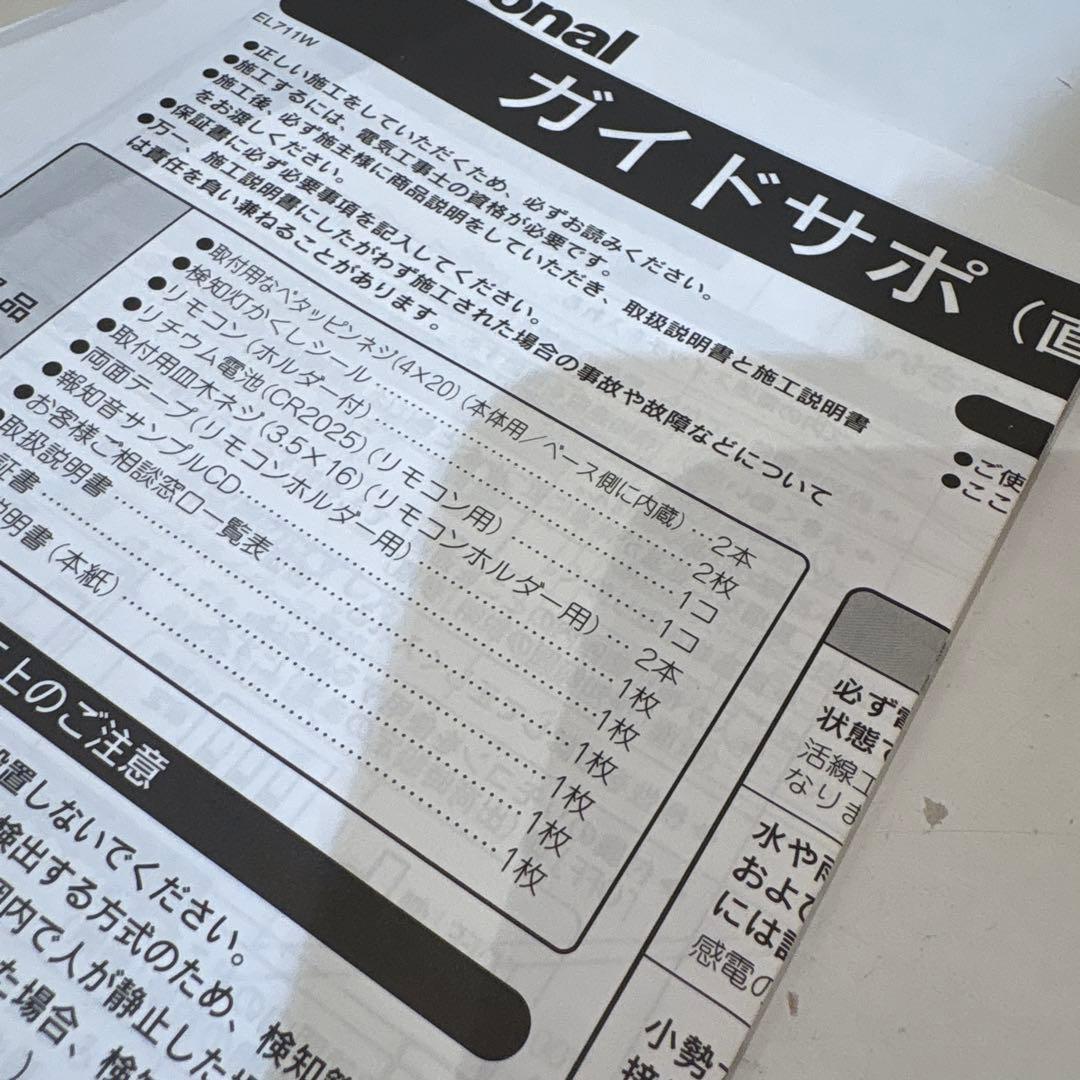 onal
EL711W
ガイドサポ(直
●正しい施工をしていただくため、必ずお読みください。
●施工するには、電気工事士の資格が必要です。
●施工後、必ず施主様に商品説明をしていただき、取扱説明書と施工説明書
をお渡しください。
●保証書に必ず必要事項を記入してください。
●万一、施工説明書にしたがわず施工された場合の事故や故障などについて
は責任を負い兼ねることがあります。
品
●取付用なベタッピンネジ(4×20)(本体用/ベース側に内蔵)‥2本
●検知灯かくしシール……2枚
●リモコン(ホルダー付)……1コ
●リチウム電池(CR2025)(リモコン用)……1コ
●取付用皿木ネジ(3.5×16)(リモコンホルダー用)……2本
●両面テープ(リモコンホルダー用)……1枚
●報知音サンプルCD……1枚
●お客様ご相談窓口一覧表……1枚
●取扱説明書……1枚
証書……1枚
説明書(本紙)……1枚
上のご注意
設置しないでください。
検出する方式のため、検知範
囲内で人が静止した場
た場合、検知
●ご使
●ここ
必ず電
状態で
活線工
なりま
水や雨
およて
には
感電の
小勢
接